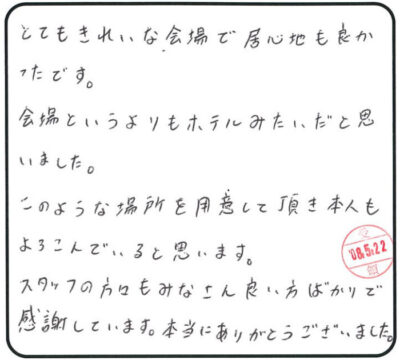 とてもきれいな会場で居心地も良か
ったです。
会場というよりもホテルみたいだと思
いました。
このような場所を用意して頂き本人も
よろこんでいると思います。
スタッフの方々もみなさん良い方ばかりで
感謝しています。本当にありがとうございました。
08.5.22